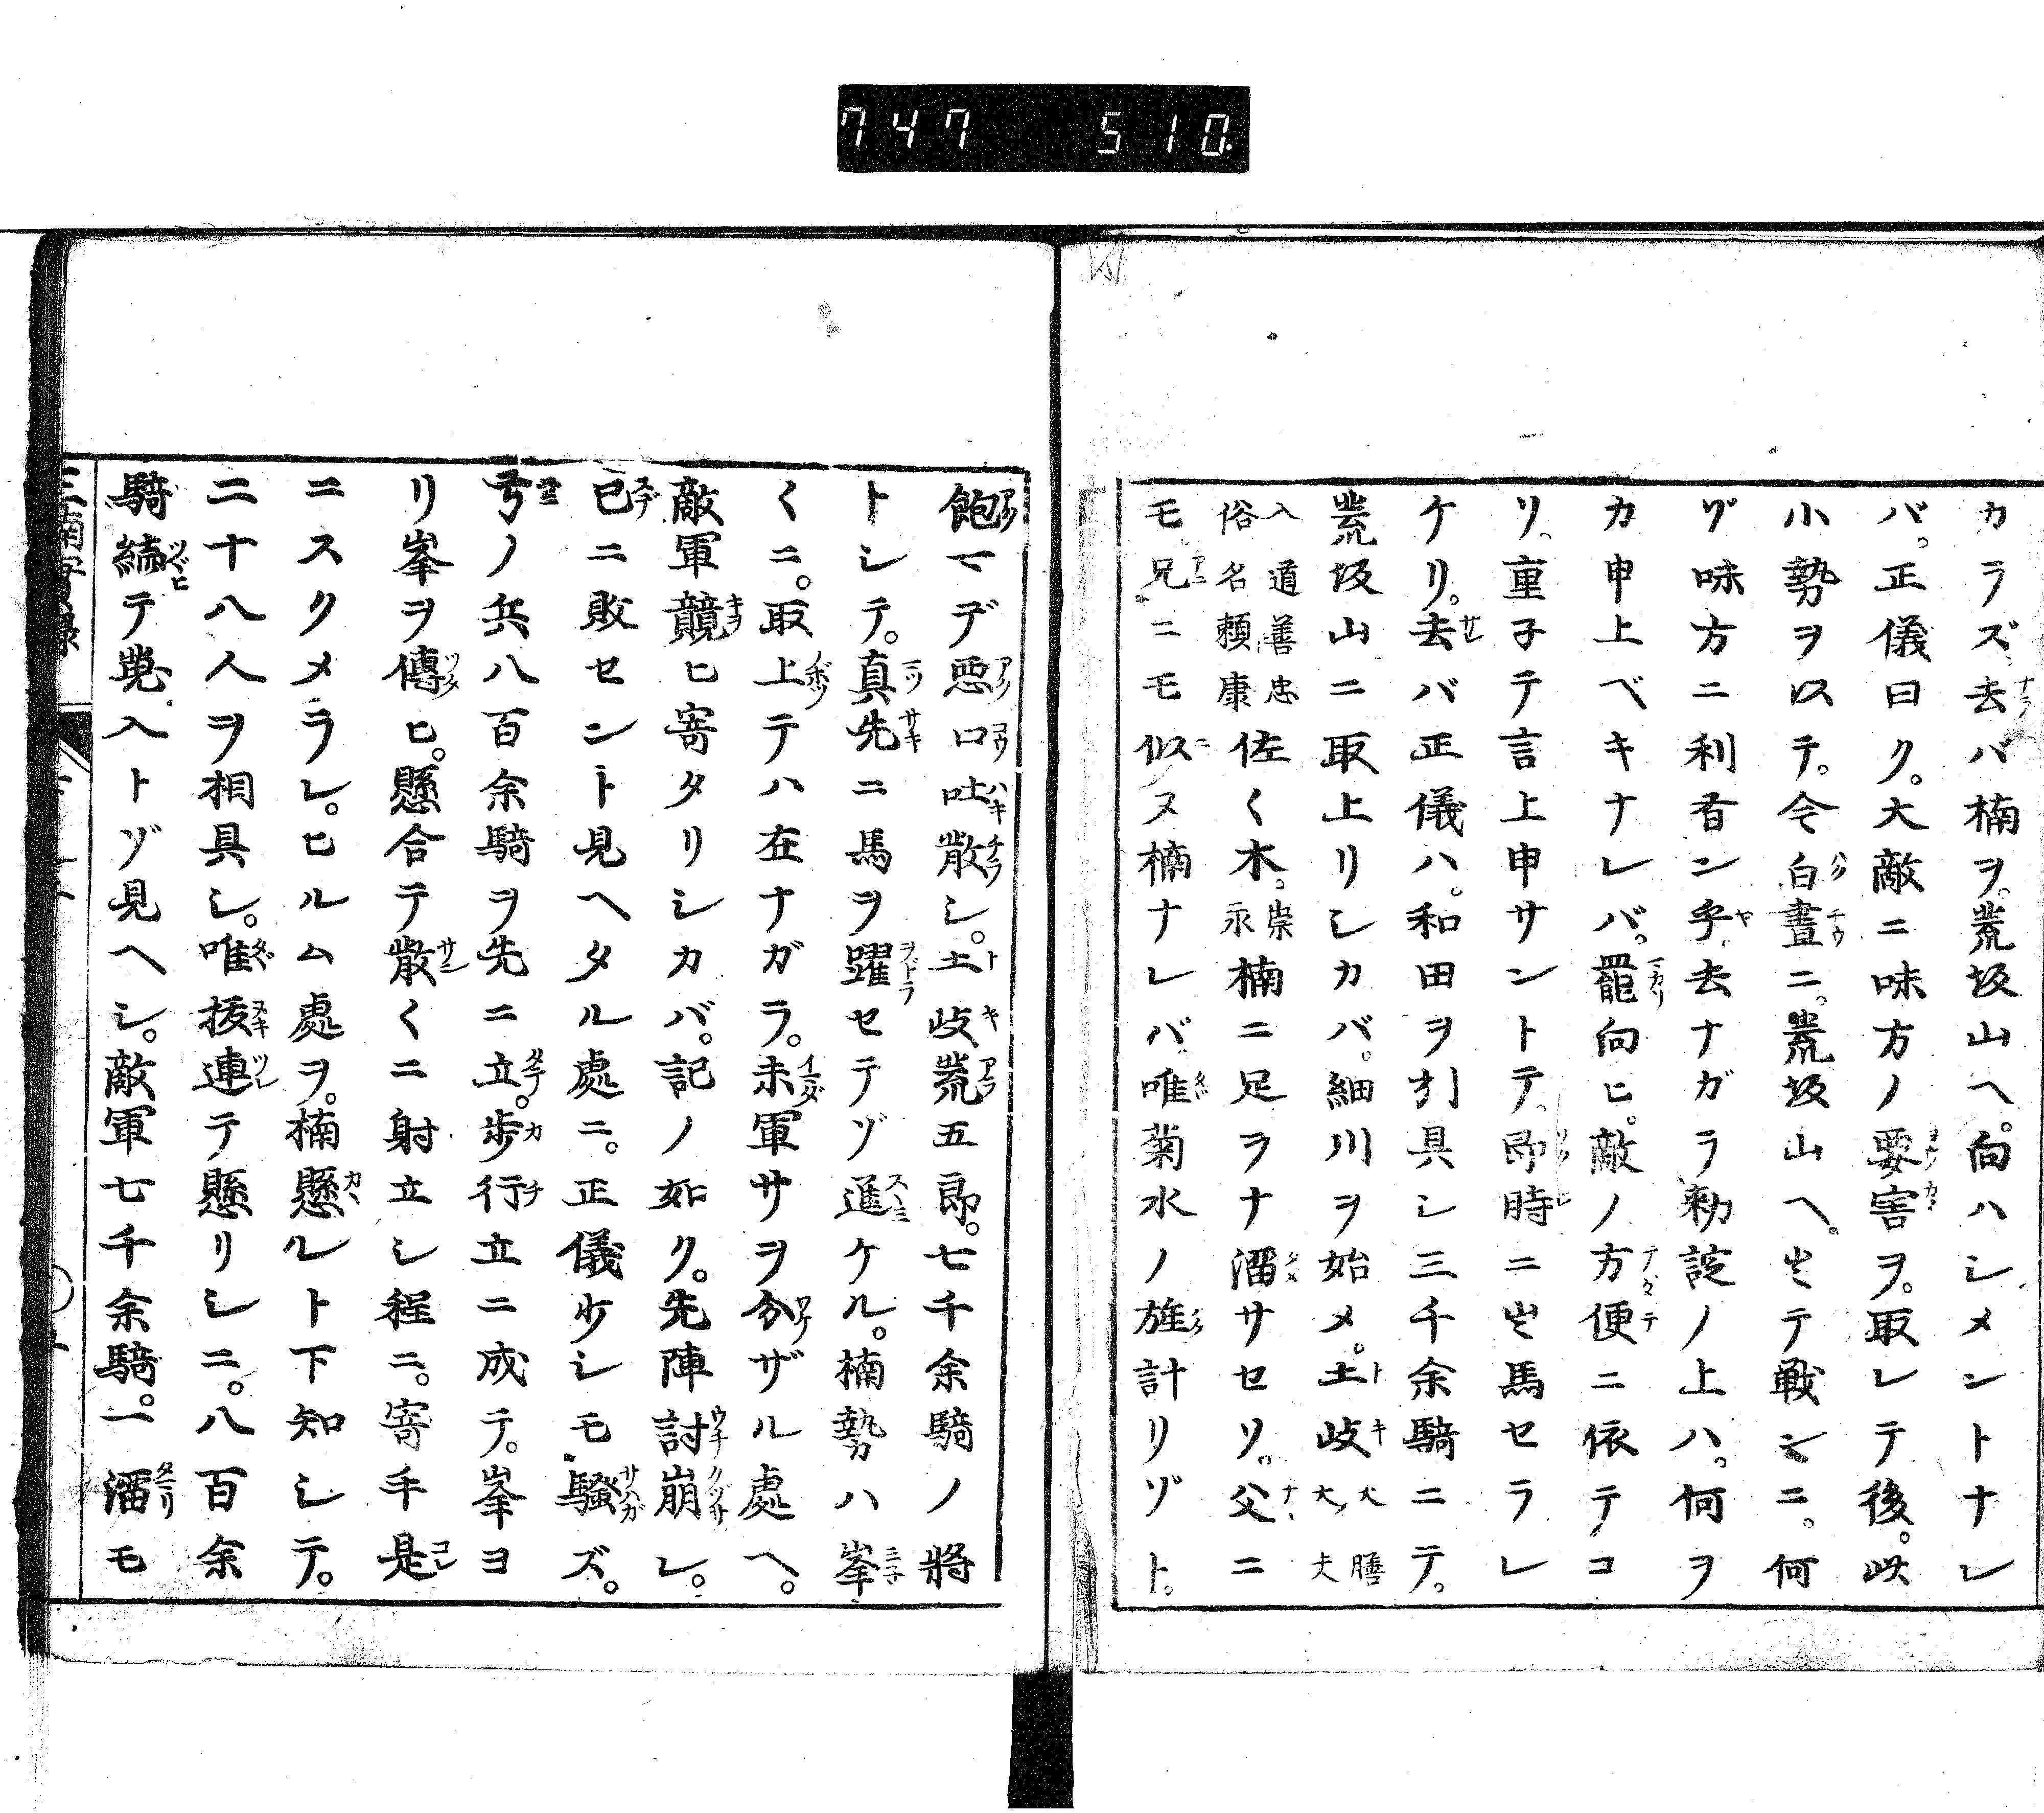 747 510
カラズ去バ楠ヲ。荒坂山ヘ。向ハシメントナレ
バ。正儀曰ク。大敵ニ味方ノ要害ヲ。取レテ後。此
小勢ヲ以テ。今白晝ニ。荒坂山ヘ。出テ戦ンニ。何
ゾ味方ニ利有ン乎。去ナガラ勅諚ノ上ハ。何ヲ
カ申上ベキナレバ。罷向ヒ。敵ノ方便ニ依テコ
リ。重子テ言上申サントテ。即時ニ出馬セラレ
ケリ。去バ正儀ハ。和田ヲ引具シ三千余騎ニテ。
荒坂山ニ取上リシカバ。細川ヲ始メ。土岐大膳大夫
入道善忠俗名頼康佐々木。崇永楠ニ足ヲナ溜サセリ。父ニ
モ。兄ニモ似ヌ楠ナレバ。唯菊水ノ旌計リゾト。
飽マデ悪口吐散シ。土岐荒五郎。七千余騎ノ將
トシテ。真先ニ馬ヲ躍セテゾ進ケル。楠勢ハ峯
々ニ。取上テハ在ナガラ。未軍サヲ分ザル處ヘ。
敵軍競ヒ寄タリシカバ。記ノ如ク。先陣討崩レ。
已ニ敗セント見ヘタル處ニ。正儀少シモ騒ズ。
弓ノ兵八百余騎ヲ先ニ立。歩行立ニ成テ。峯ヨ
リ峯ヲ傳ヒ。懸合テ散々ニ射立シ程ニ。寄手是
ニスクメラレ。ヒルム處ヲ。楠懸ルト下知シテ。
二十八人ヲ相具シ。唯抜連テ懸リシニ。八百余
騎續テ嵬入トゾ見ヘシ。敵軍七千余騎。一溜モ
三楠實録